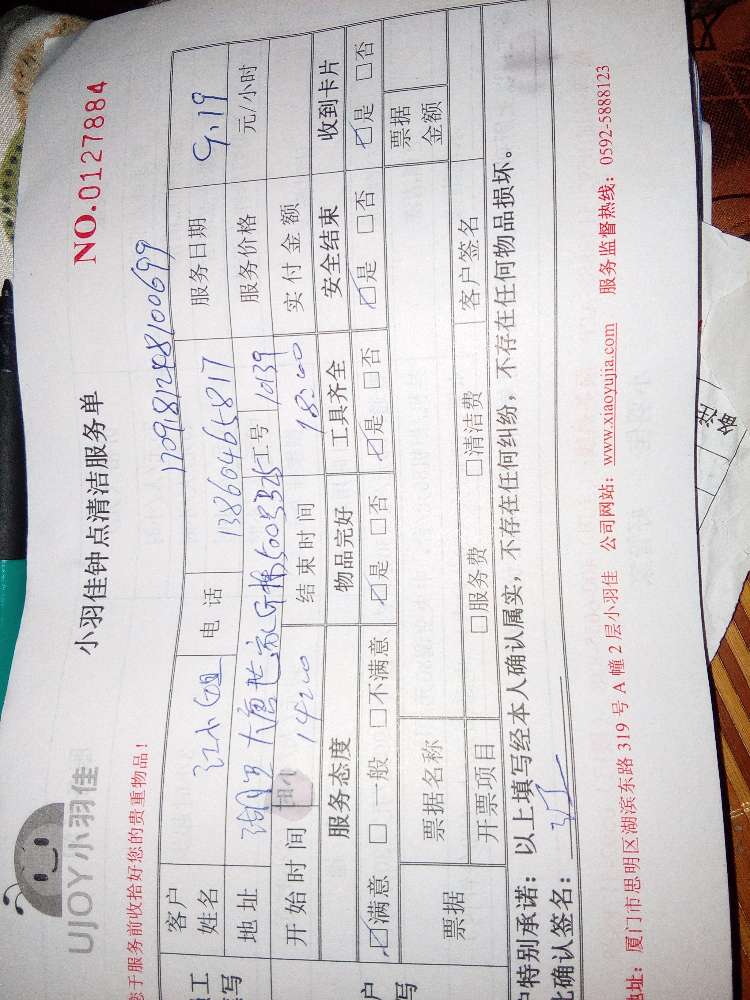 UJOY小羽佳
小羽佳钟点清洁服务单
NO.0127884
您于服务前收拾好您的贵重物品！
1709181248100699
客户姓名 江小姐 电 话 13860465817 服务日期 9.19
地 址 大唐世家 工号 1039 服务价格 元/小时
开 始 时 间 14:00 结 束 时 间 18:00 实 付 金 额
服务态度 物品完好 工具齐全 安全结束 收到卡片
☑满意 □ 一般 □不满意 ☑是 □否 ☑是 □否 ☑是 □否 ☑是 □否
票据 票据名称 票据金额
开票项目 □服务费 □清洁费 客户签名
户特别承诺：以上填写经本人确认属实，不存在任何纠纷，不存在任何物品损坏。
此确认签名：
地址：厦门市思明区湖滨东路 319 号 A 幢 2 层小羽佳 公司网站：www.xiaoyujia.com 服务监督热线：0592-5888123
备注